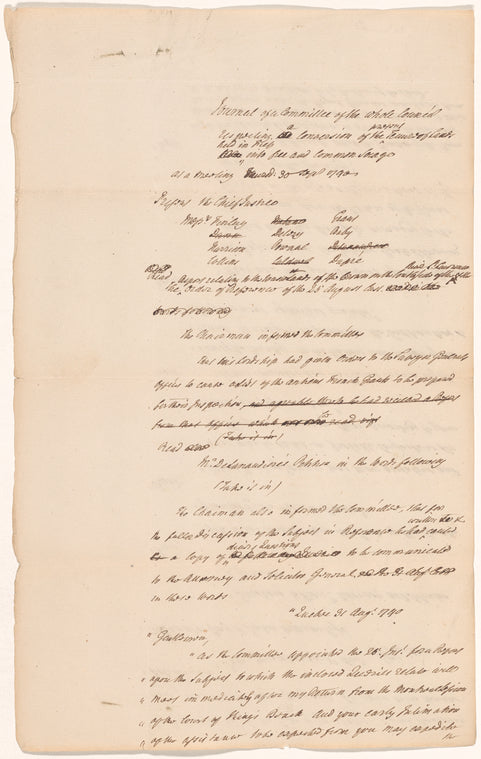 Journal of a Committee of the whole Council
respecting a Conversion of the present Tenures of Lands
held in Fief
into free and Common Socage
at a meeting 30 Sepr 1790
Present the Chief Justice
Messrs Finlay Grant
DeLery Baby
Harrison Pownal
Collins Dupre
Read
The Order of Reference of the 25 August last
The Chairman informed the Committee
that his Lordship had given Orders to the Surveyor Generals
Office to cause extracts of the antient French Grants to be prepared
for their Inspection
(Take it in)
Read
Mr DeLanaudiere's Petition in the Words following
(Take it in)
The Chairman also informed the Committee, that for
the fuller discussion of the Subject in Reference he had caused
a Copy of to be communicated
to the Attorney and Solicitor General
in these words
" Quebec 31 Augt 1790
" Gentlemen,
" As the Committee appointed the 25 Inst. for a Report
" upon the Subject to which the inclosed relate will
" meet immediately after my Return from the Montreal Session
" of the Court of King's Bench and your early Intimation
" of the assistance to be expected from you may expedite